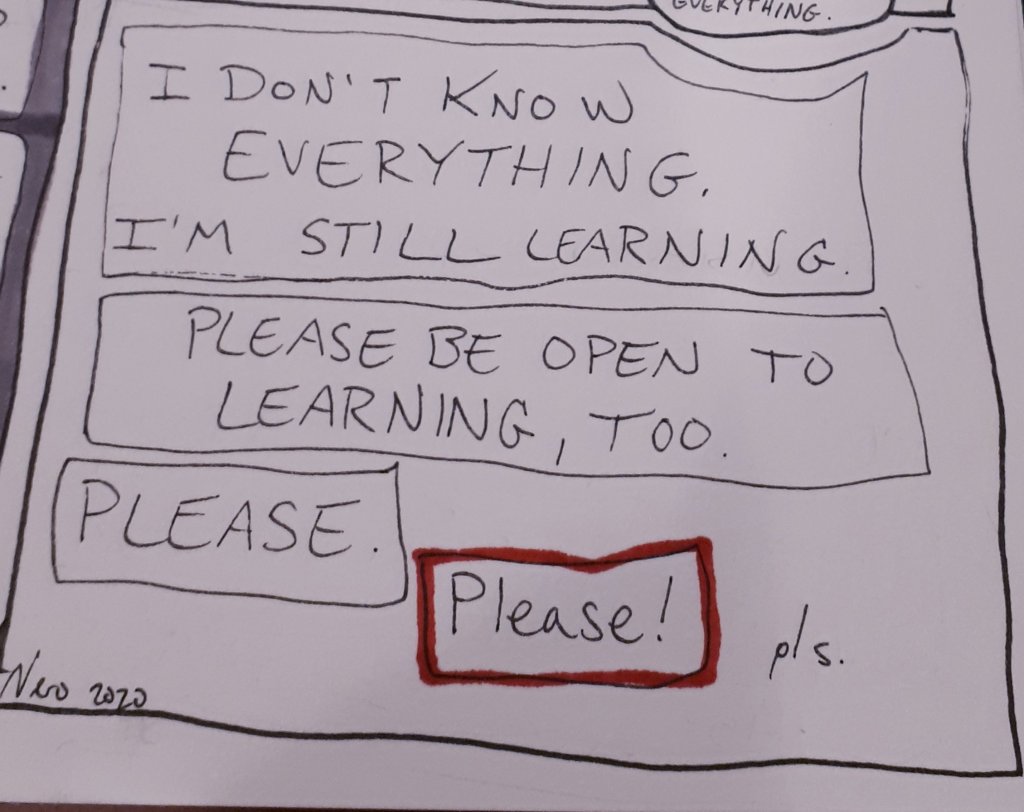 EVERYTHING.
I DON'T KNOW
EVERYTHING.
I'M STILL LEARNING.
PLEASE BE OPEN TO
LEARNING, TOO.
PLEASE.
Please!
pls.
Nero 2020